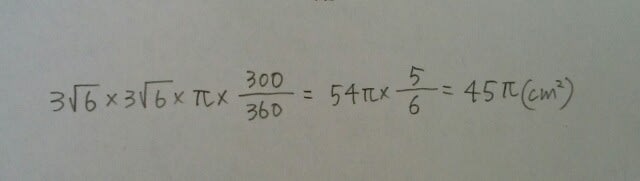 3√6 × 3√6 × π × 300/360 = 54π × 5/6 = 45π (cm²)